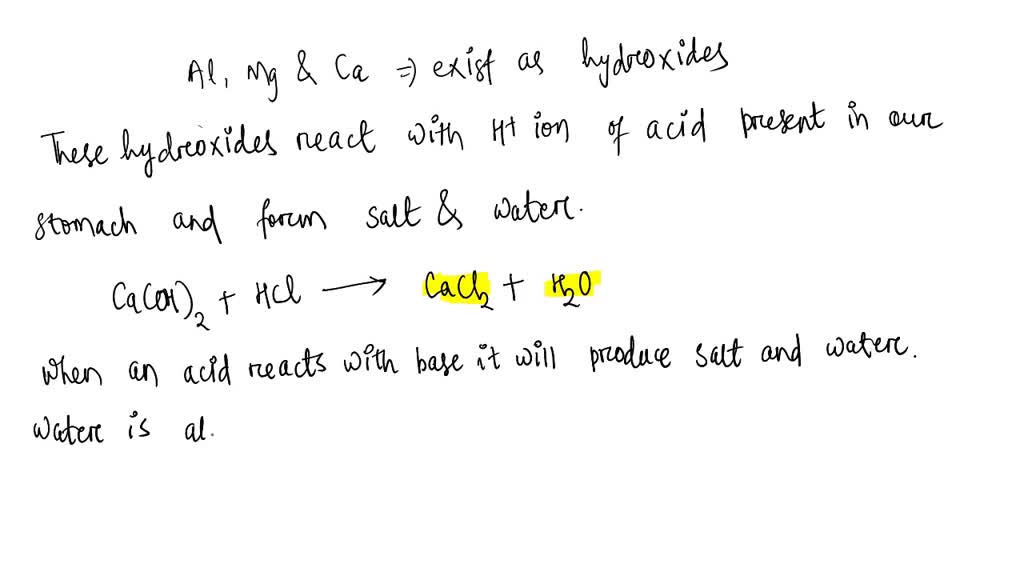 Al, Mg & Ca ⇒ exist as hydroxides
These hydroxides react with H+ ion of acid present in our
stomach and form salt & water.
Ca(OH)2 + HCl ⟶ CaCl2 + H2O
when an acid reacts with base it will produce salt and water.
water is al.